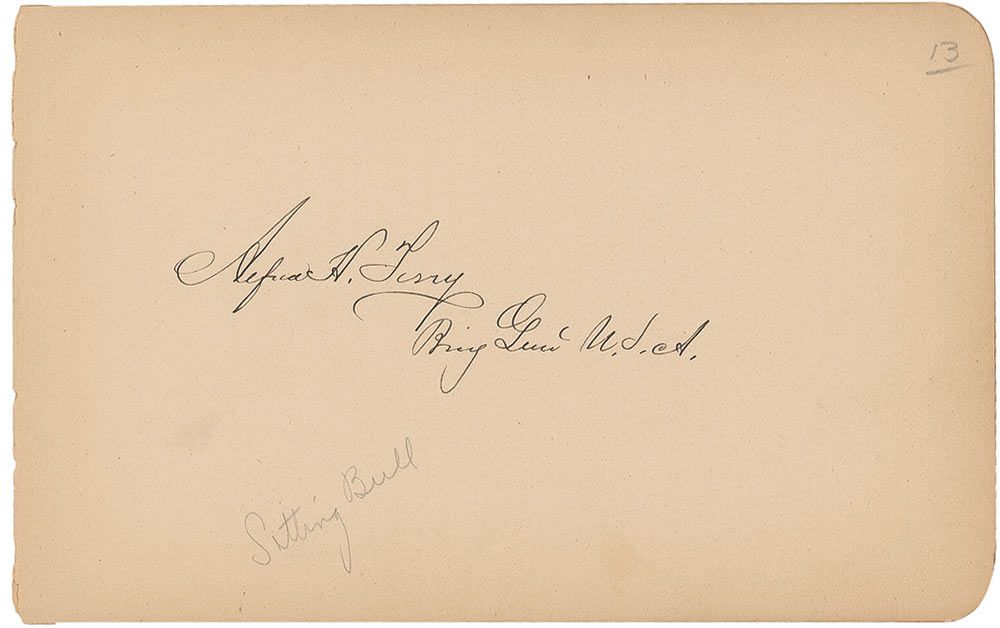 13
Alfred H. Terry
Brig Genl U.S.A.
Sitting Bull